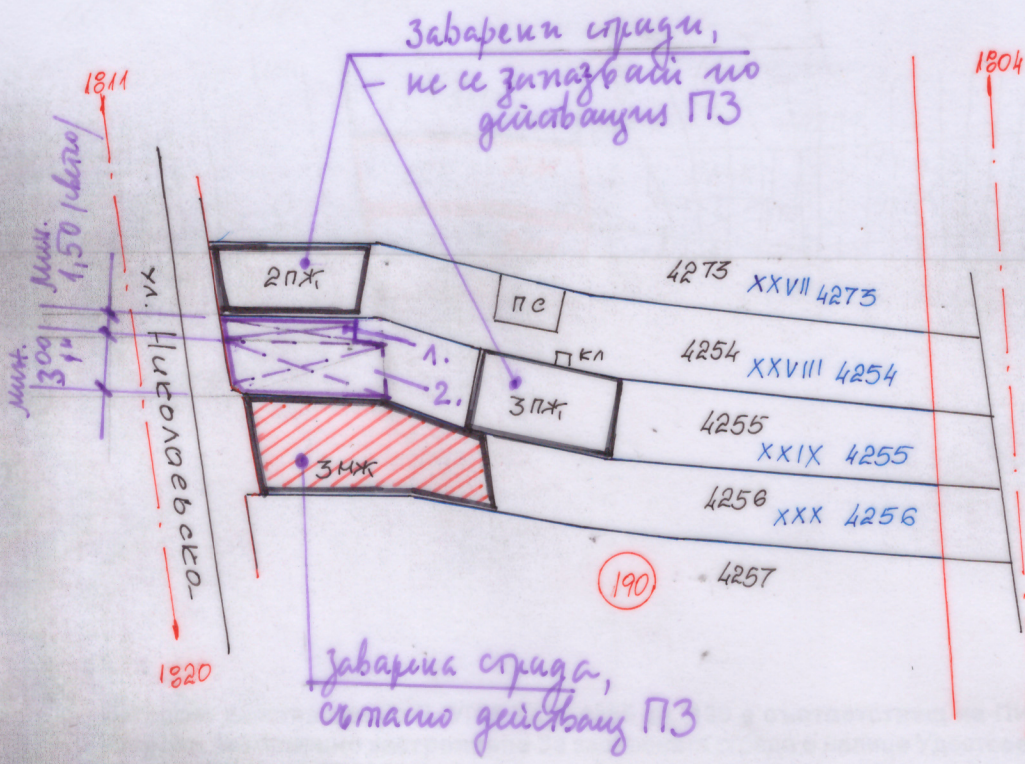 Заварени сгради,
не се запазват по
действащия ПЗ
1811
1804
мин.
1,50 /светло/
мин.
300
ул. Николаевска
2ПЖ
ПС
4273
XXVII 4273
1.
2.
ПКЛ
3ПЖ
4254
XXVIII 4254
4255
XXIX 4255
3МЖ
4256
XXX 4256
190
4257
1820
Заварена сграда,
съгласно действащ ПЗ